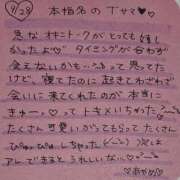 9/28 本指名のTサマ♥♡
急なオキニトークがとっても嬉し
かったよ♡ タイミングが合わず
会えないかも…って思ってた
けど、寝てたのに起きてわざわざ
会いに来てくれたのが本当に
きゅーん♡ってトキメいちゃった
たくさん可愛いがってもらってたくさん
ぴゅぴゅしちゃった 次は
アレできるとうれしいな♡
♡あやめ♡